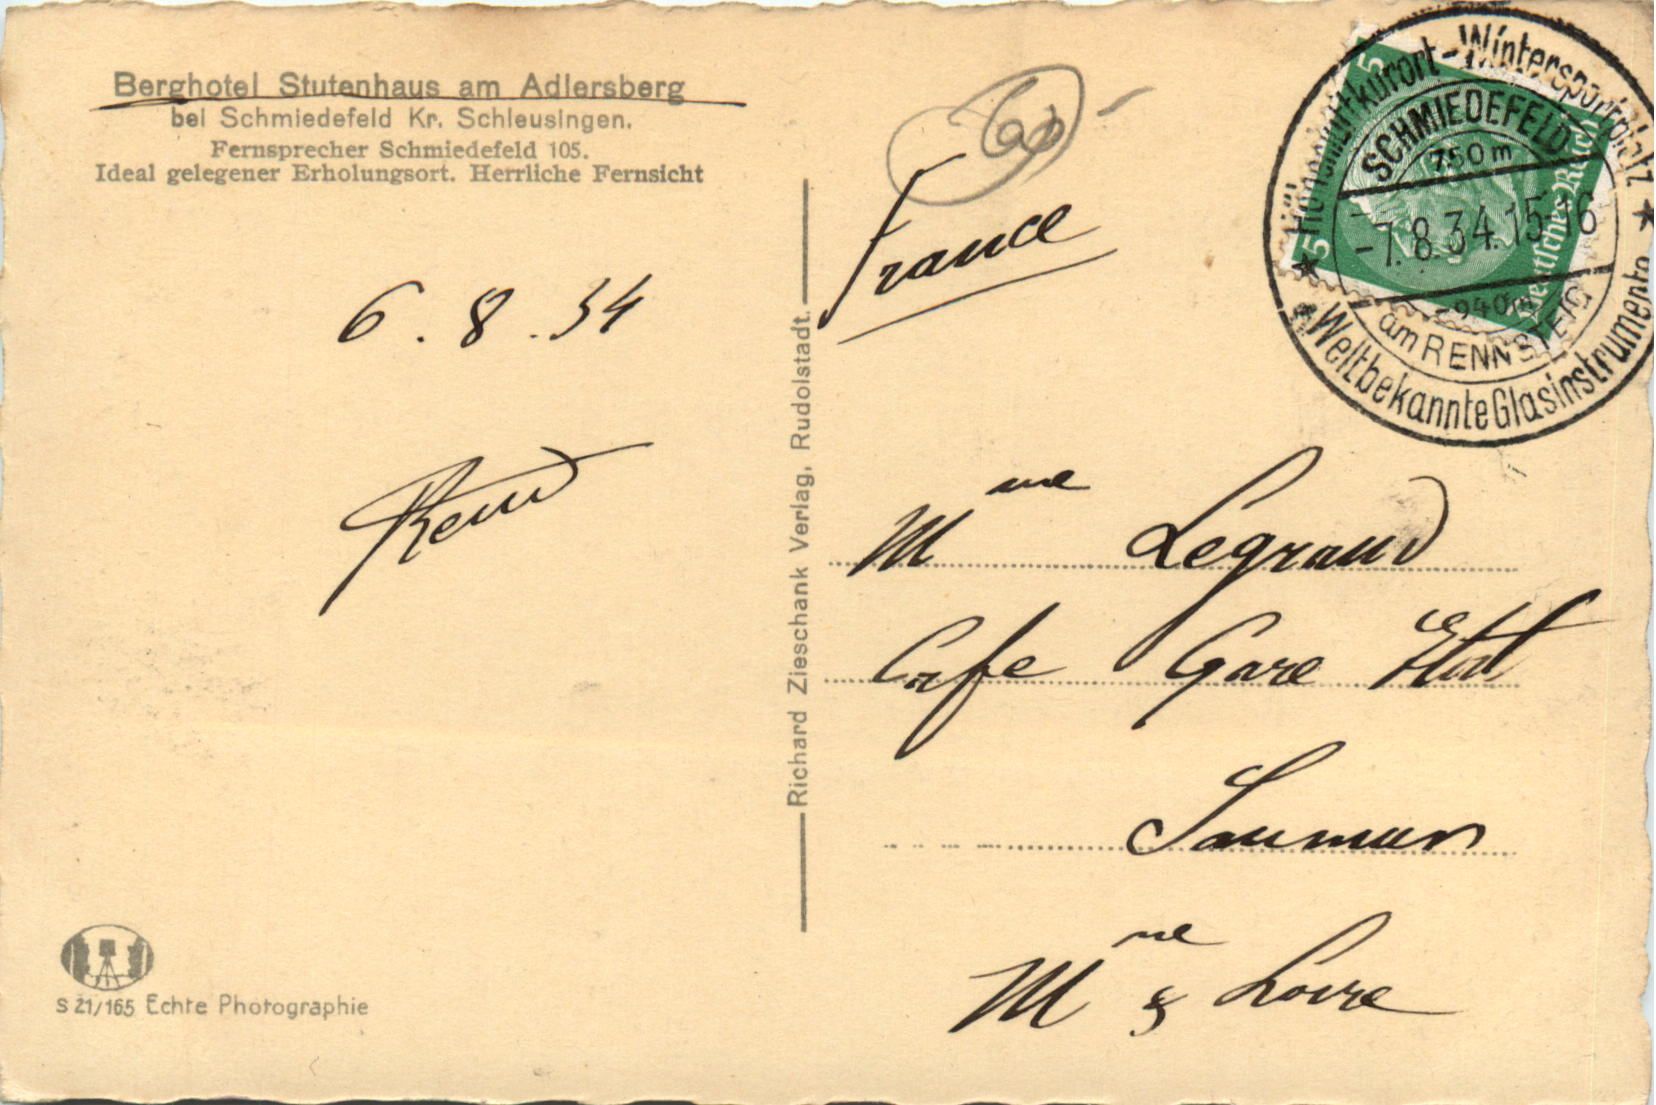 Berghotel Stutenhaus am Adlersberg
bei Schmiedefeld Kr. Schleusingen.
Fernsprecher Schmiedefeld 105.
Ideal gelegener Erholungsort. Herrliche Fernsicht
6. 8. 34
René
S 21/165 Echte Photographie
Richard Zieschank Verlag, Rudolstadt.
60
France
Höhenluftkurort - Wintersportplatz
SCHMIEDEFELD
750 m
-7. 8. 34. 15-16
-940 m
am RENNSTEIG
Weltbekannte Glasinstrumente
5
5
Deutsches Reich
Mme Legrand
Cafe Gare Etat
Saumur
Mne & Loire